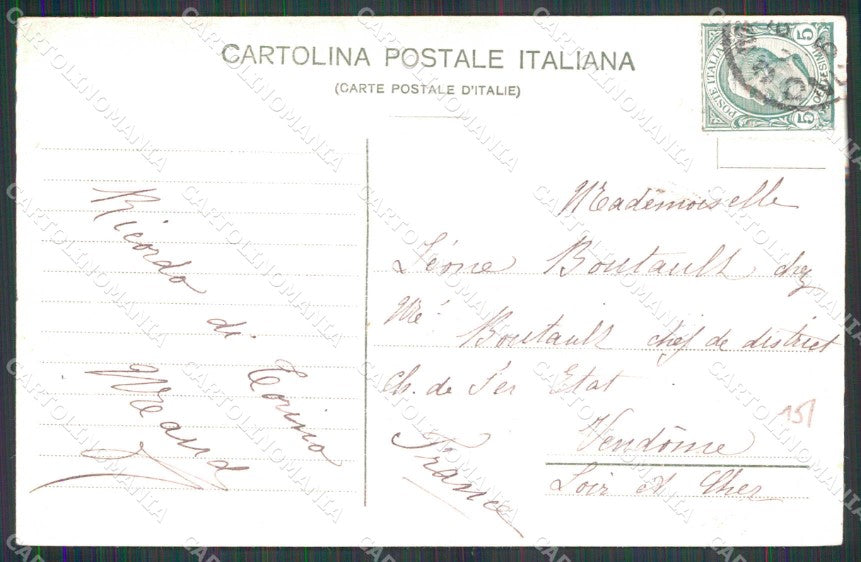 CARTOLINA POSTALE ITALIANA
(CARTE POSTALE D'ITALIE)
POSTE ITALIANE
5 5
Ricordo di Torino
Mademoiselle
Léonie Boutault chez
Mr Boutault chef de district
Ch. de Fer Etat
Vendôme
Loir et Cher
France
151
CARTOLINOMANIA